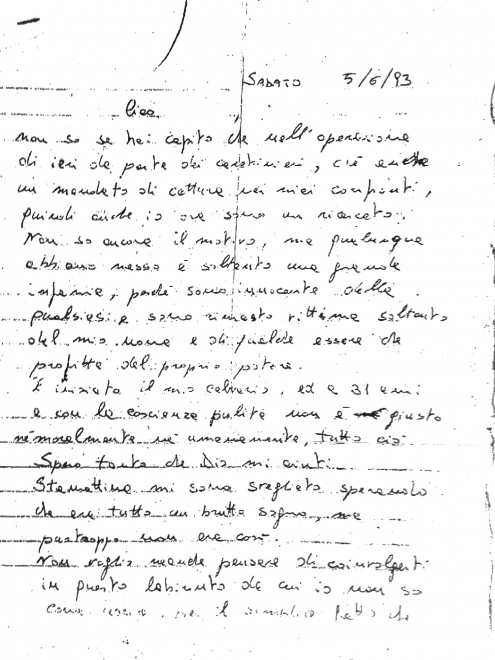 SABATO 5/6/93
Ciao,
non so se hai capito che nell'operazione
di ieri da parte dei carabinieri, c'è anche
un mandato di cattura nei miei confronti,
quindi anche io ora sono un ricercato.
Non so ancora il motivo, ma qualunque
abbiano messo è soltanto una grande
infamia, perché sono innocente della
qualsiasi e sono rimasto vittima soltanto
del mio nome e di qualche essere che
profitta del proprio potere.
È iniziato il mio calvario, ed a 31 anni
e con la coscienza pulita non è giusto
né moralmente né umanamente, tutto ciò.
Spero tanto che Dio mi aiuti.
Stamattina mi sono svegliato sperando
che era tutto un brutto sogno, ma
purtroppo non era così.
Non voglio neanche pensare di coinvolgerti
in questo labirinto da cui io non so
come uscire, per il semplice fatto che